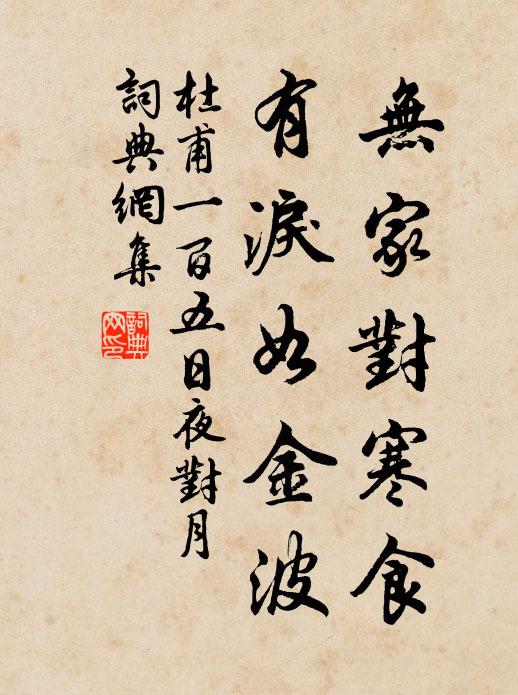 無家對寒食
有淚如金波
杜甫一百五日夜對月
詞典網集
詞典
网印